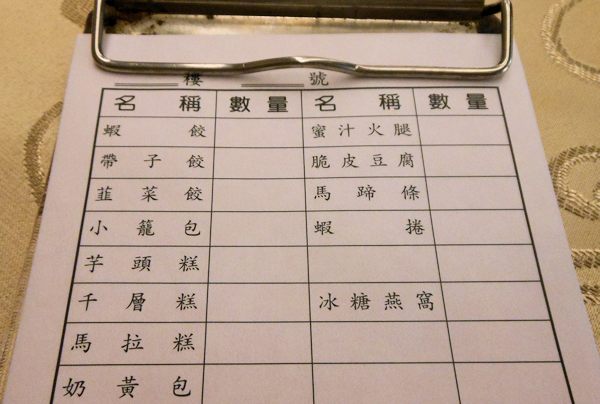 樓 號
名稱 數量 名稱 數量
蝦餃 蜜汁火腿
帶子餃 脆皮豆腐
韮菜餃 馬蹄條
小籠包 蝦捲
芋頭糕
千層糕 冰糖燕窩
馬拉糕
奶黃包